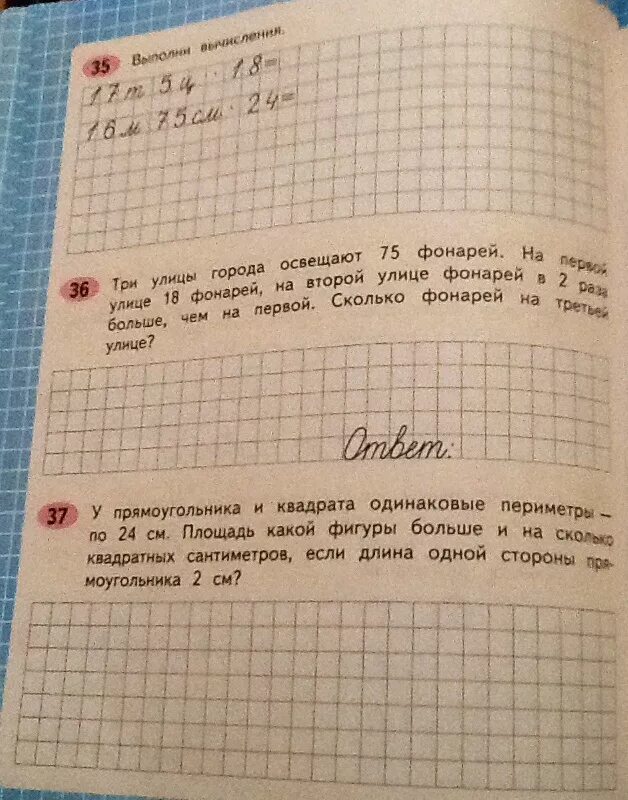 35 Выполни вычисления.
17 т 5 ц · 18=
16 м 75 см · 24=
36 Три улицы города освещают 75 фонарей. На первой
улице 18 фонарей, на второй улице фонарей в 2 раза
больше, чем на первой. Сколько фонарей на третьей
улице?
Ответ:
37 У прямоугольника и квадрата одинаковые периметры –
по 24 см. Площадь какой фигуры больше и на сколько
квадратных сантиметров, если длина одной стороны пря-
моугольника 2 см?